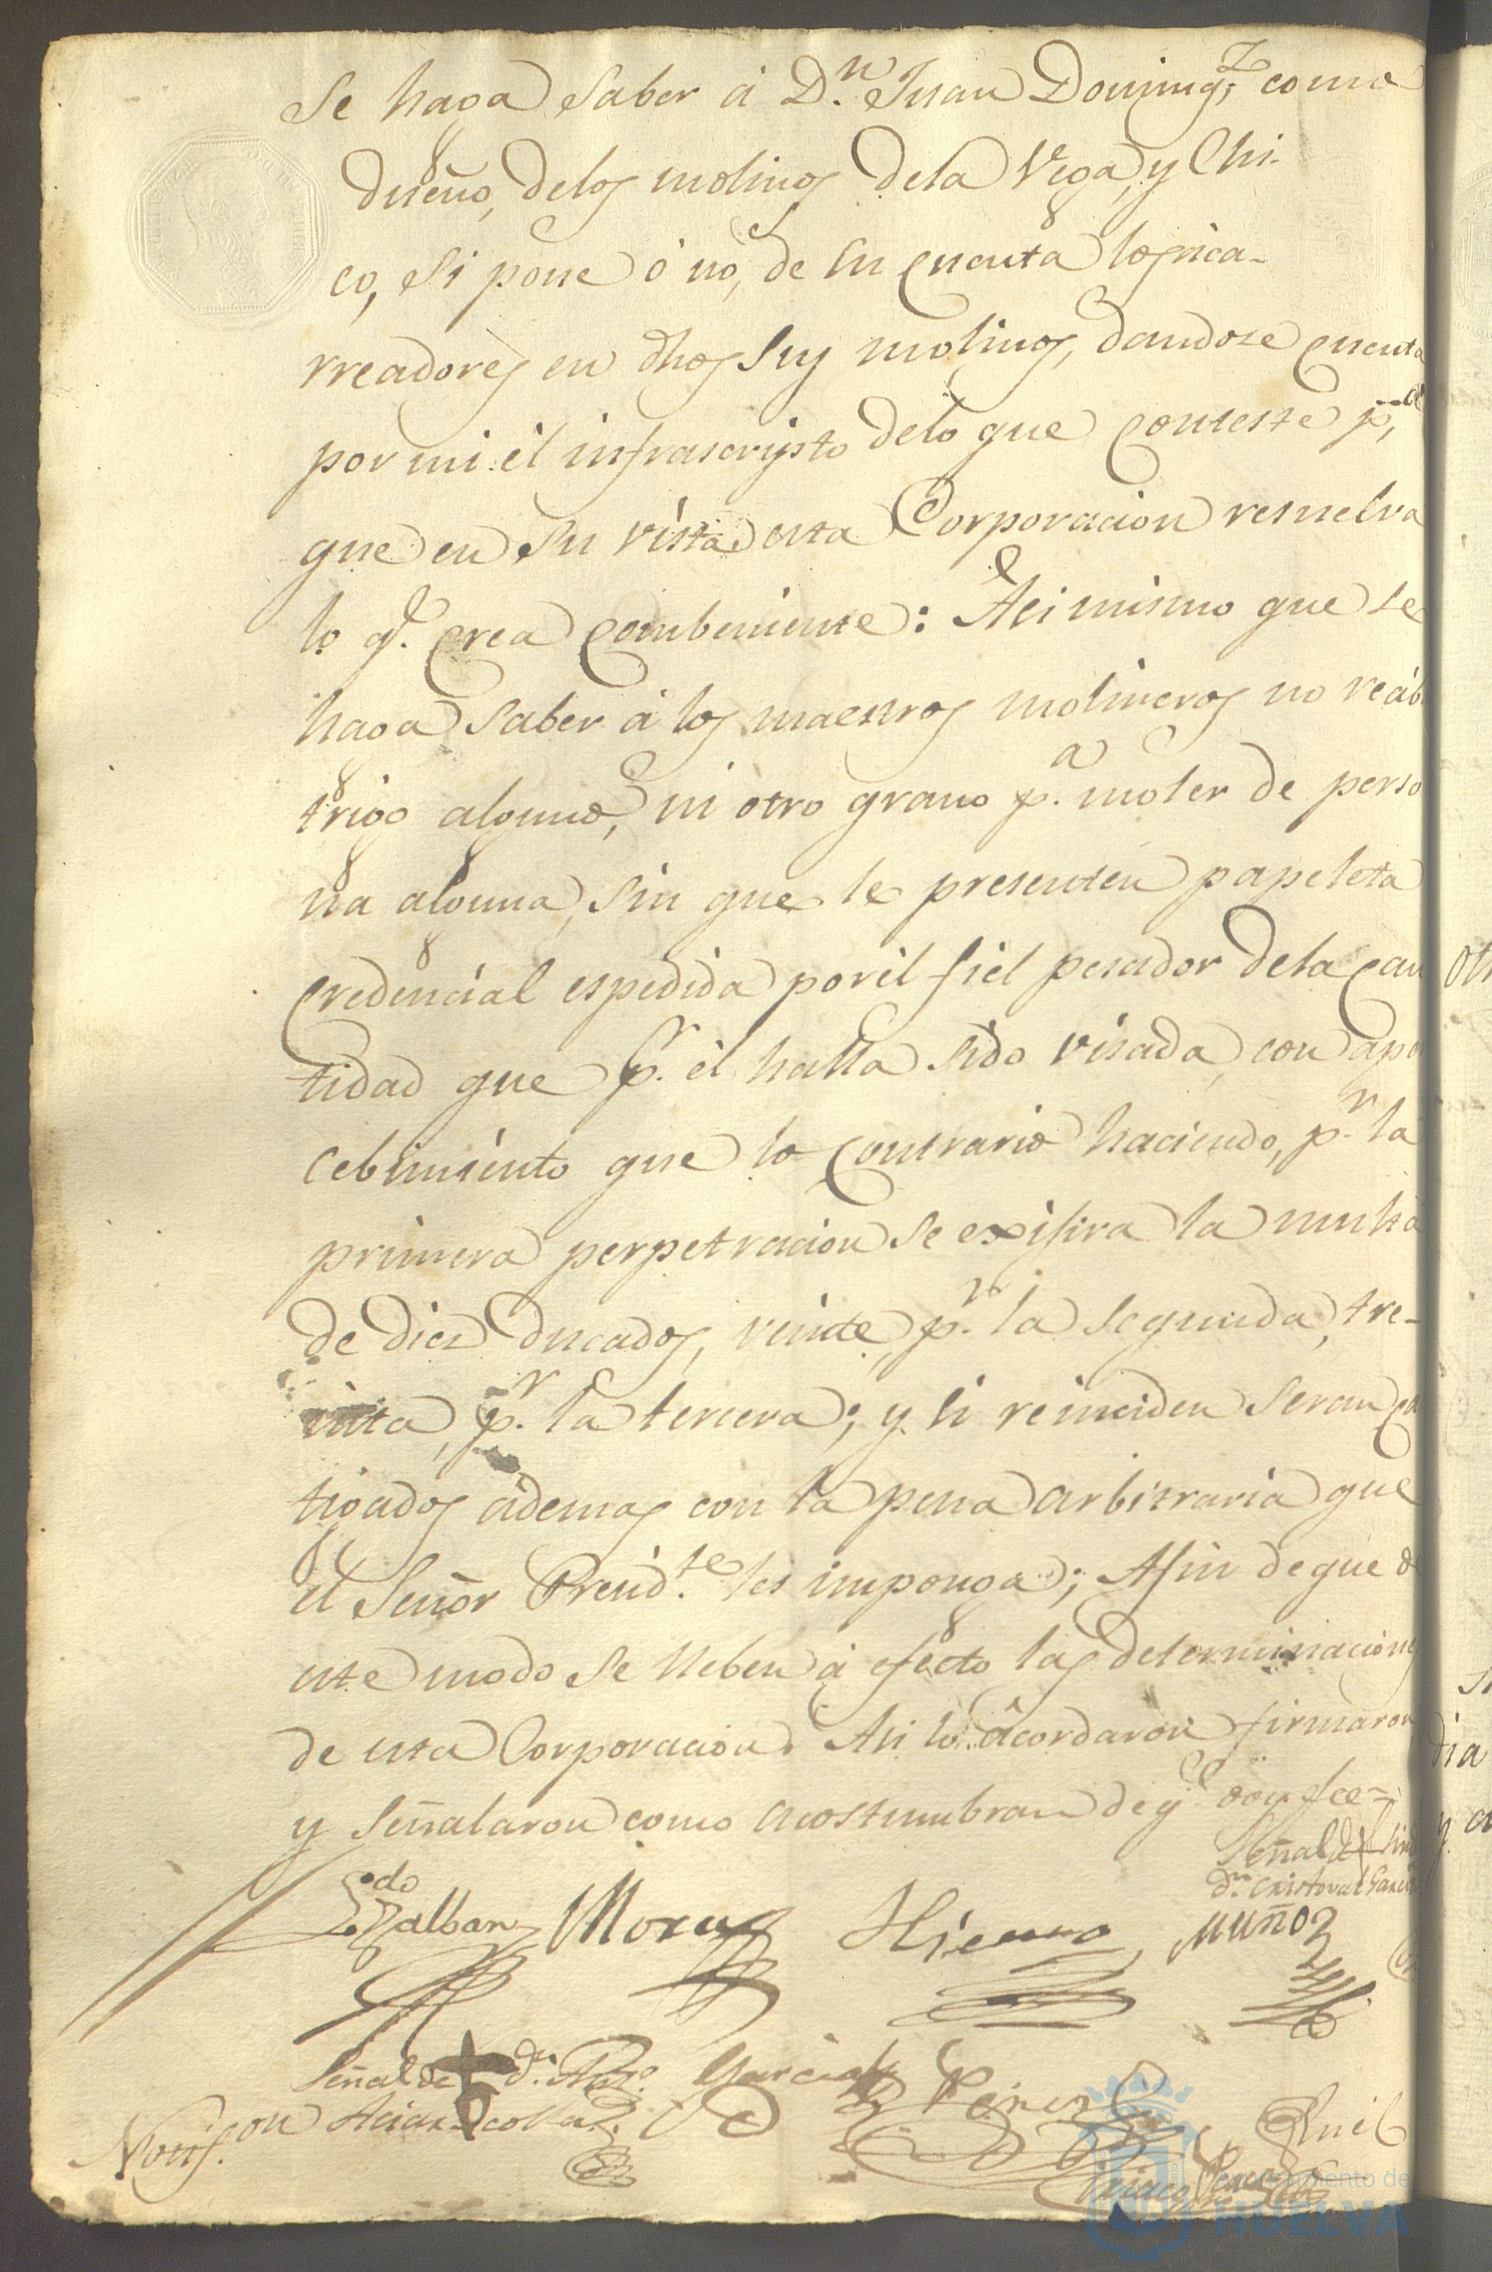 Se haga saber á D.n Juan Doming.z como
dueño, delos molinos dela Vega, y Chi-
co, si pone ó no, de su cuenta los rica-
rreadores en dhos sus molinos, dandose cuenta
por mi el infrascripto delo que conteste p.a
que en su vista esta Corporacion resuelva
lo q.e crea combeniente: Asi mismo que se
haga saber á los maestros molineros no recib
trigo alguno, ni otro grano p.a moler de perso
na alguna, sin que le presenten papeleta
credencial espedida por él fiel pesador dela can
tidad que p.r él halla sido visada, con ape
cebimiento que lo contrario haciendo, p.r la
primera perpetracion se exijira la multa
de diez ducados, veinte, p.r la segunda, tre-
inta, p.r la tercera; y si reinciden seran ca
tigados ademas con la pena arbitraria que
el Señor Presid.te les imponga; Afin deque d
este modo se lleben á efecto las determinaciones
de esta Corporacion. Asi lo acordaron firmaron
y señalaron como acostumbran de q.e doy fee=
Señal de + 
d.n Cristoval Garcia
L.do Zalban Mora Hierro Muñoz
Señal de + d.n Garcia Perez
Notif.on
Ayuntamiento de
HUELVA